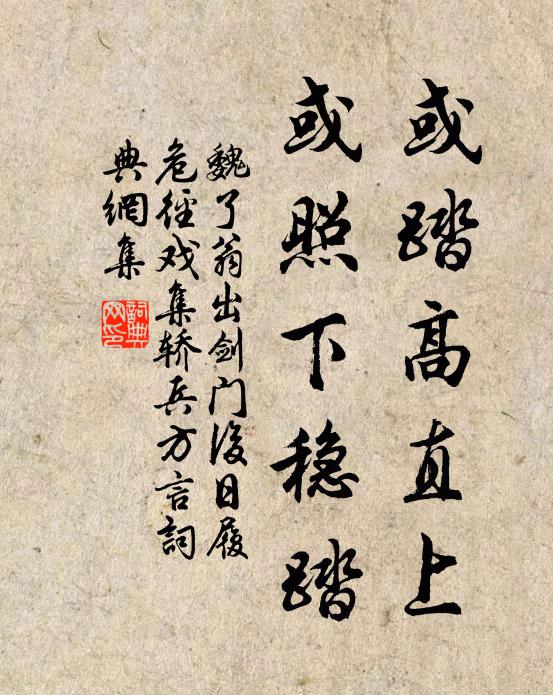 或踏高直上
或照下稳踏
魏了翁出剑门后日履
危径戏集轿兵方言詞
典網集
詞典
网印